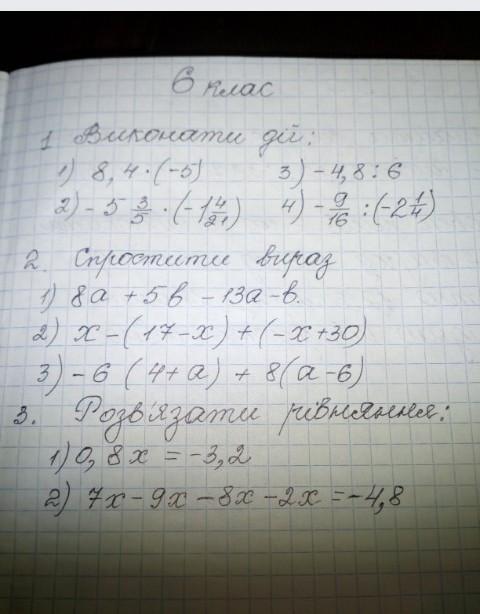 6 клас
1 Виконати дії:
1) 8,4·(-5) 3) -4,8:6
2) -5 3/5 · (-1 4/21) 4) -9/16 : (-2 1/4)
2. Спростити вираз
1) 8а + 5в - 13а - в.
2) х - (17 - х) + (-х + 30)
3) -6 (4 + а) + 8(а - 6)
3. Розв'язати рівняння:
1) 0,8х = -3,2
2) 7х - 9х - 8х - 2х = -4,8